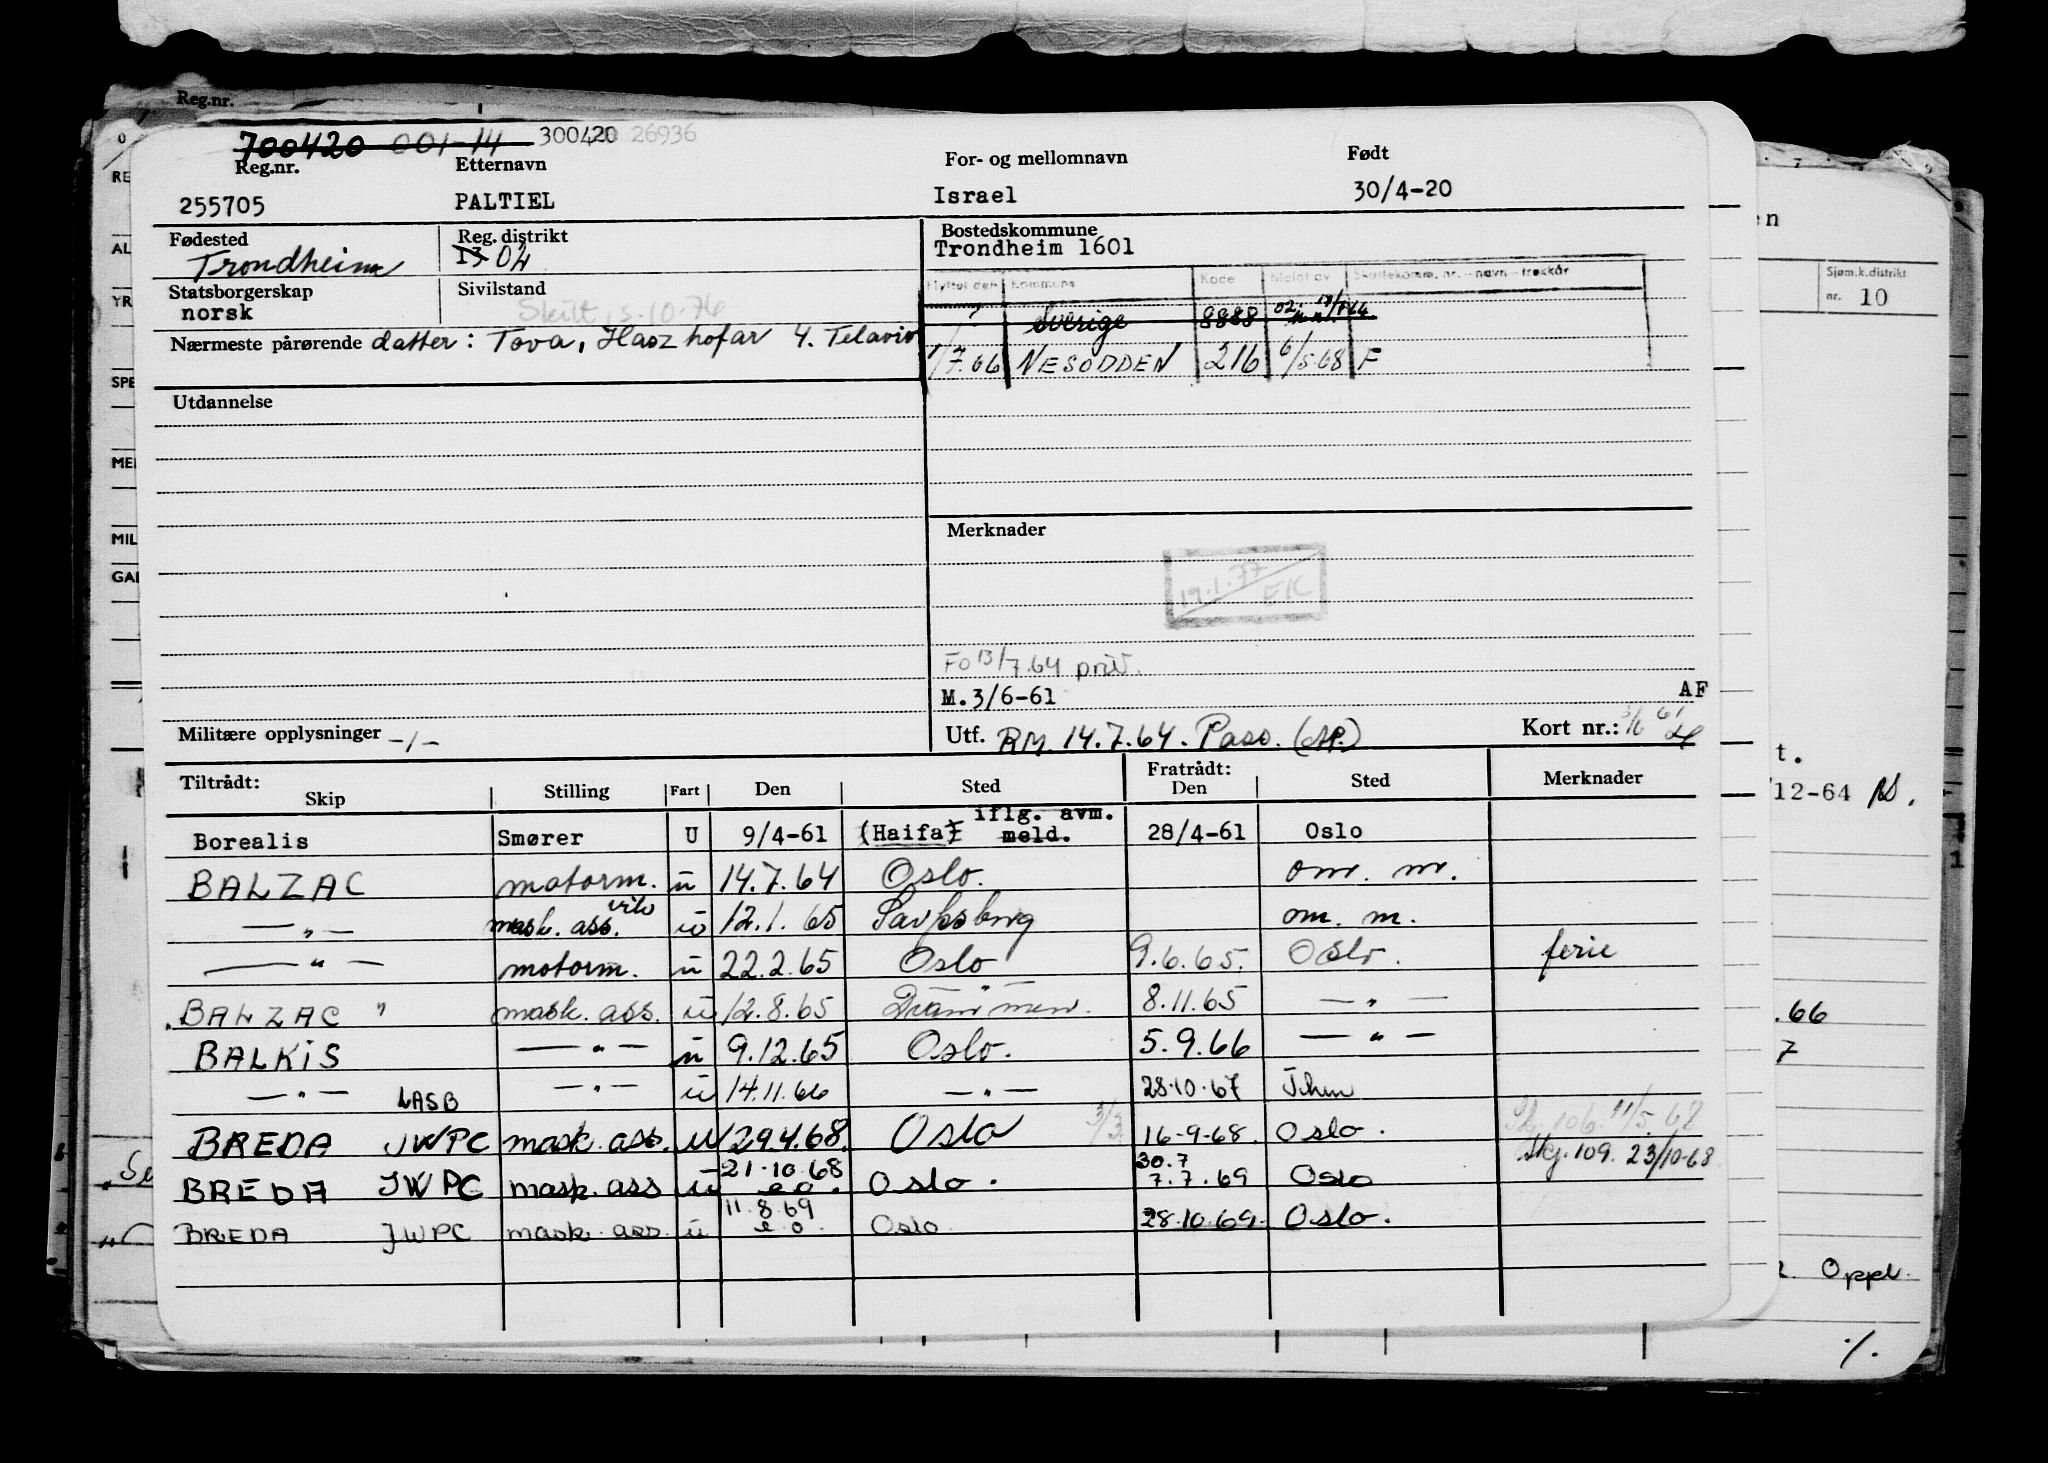 Reg.nr.
700420 001-14 300420 26936
Reg.nr. Etternavn For- og mellomnavn Født
255705 PALTIEL Israel 30/4-20
Fødested Reg. distrikt Bostedskommune
Trondheim 13 04 Trondheim 1601
Flyttet den Kommune Kode Meldt av Skattekomm. nr. - navn - trekkår
Statsborgerskap Sivilstand
norsk Skilt, 5.10.76
Sverige 8888
Nærmeste pårørende datter: Tova, Hasz hofar 4. Telaviv
1/7.66 NESODDEN 216 6/5-68 F
Utdannelse
Merknader
19.1.77 EK
FO 13/7.64 priv.
M.3/6-61 AF
Militære opplysninger -/- Utf. RM. 14.7.64. Pass. Kort nr.:
Tiltrådt: Fratrådt:
Skip Stilling Fart Den Sted Den Sted Merknader
Borealis Smører U 9/4-61 (Haifa) iflg. avm. meld. 28/4-61 Oslo
BALZAC motorm. u 14.7.64 Oslo. om. m.
— " — mask. ass. vik u 12.1.65 Sarpsborg om. m.
— " — motorm. u 22.2.65 Oslo 9.6.65. Oslo. ferie
BALZAC " mask. ass. u 12.8.65 Drammen. 8.11.65 — " —
BALKIS — " — u 9.12.65 Oslo. 5.9.66 — " —
— " — LASB — " — u 14.11.66 — " — 28.10.67 Tihm
BREDA JWPC mask. ass. u 29.4.68. Oslo 3/3 16-9-68. Oslo. Skj. 106. 11/5.68
BREDA JWPC mask. ass u 21.10.68 e.o. Oslo. 30.7 7.7.69 Oslo Skj. 109. 23/10-68
BREDA JWPC mask. ass. u 11.8.69 e o. Oslo 28.10.69. Oslo.
Sjøm.k.distrikt
nr. 10
t.
12-64
.66
7
Oppl.
%.